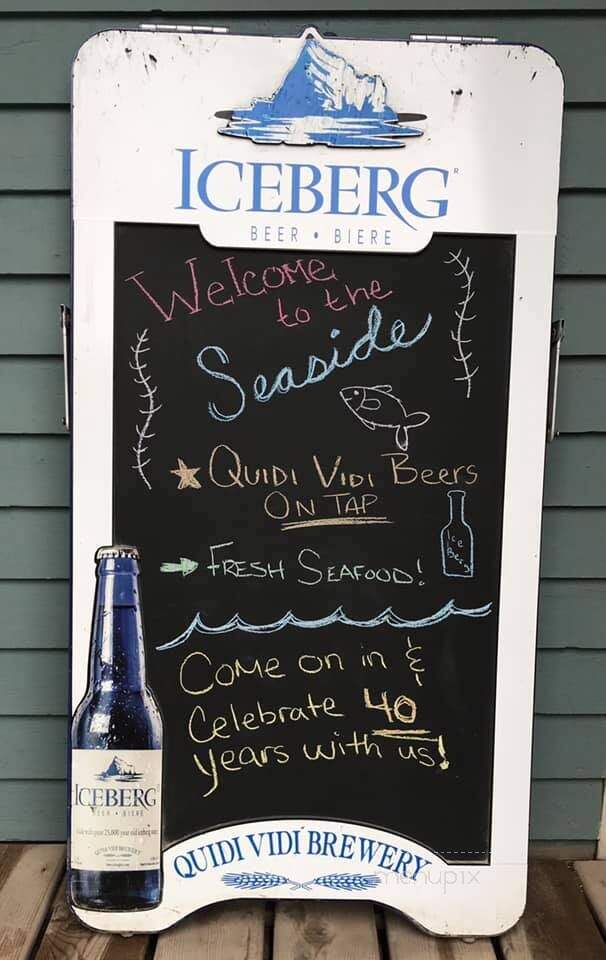 ICEBERG
BEER • BIERE
Welcome
to the
Seaside
★ QUIDI VIDI Beers
ON TAP
Ice
Berg
→ FRESH SEAFOOD!
Come on in &
Celebrate 40
years with us!
ICEBERG
BEER • BIERE
QUIDI VIDI BREWERY
menupix